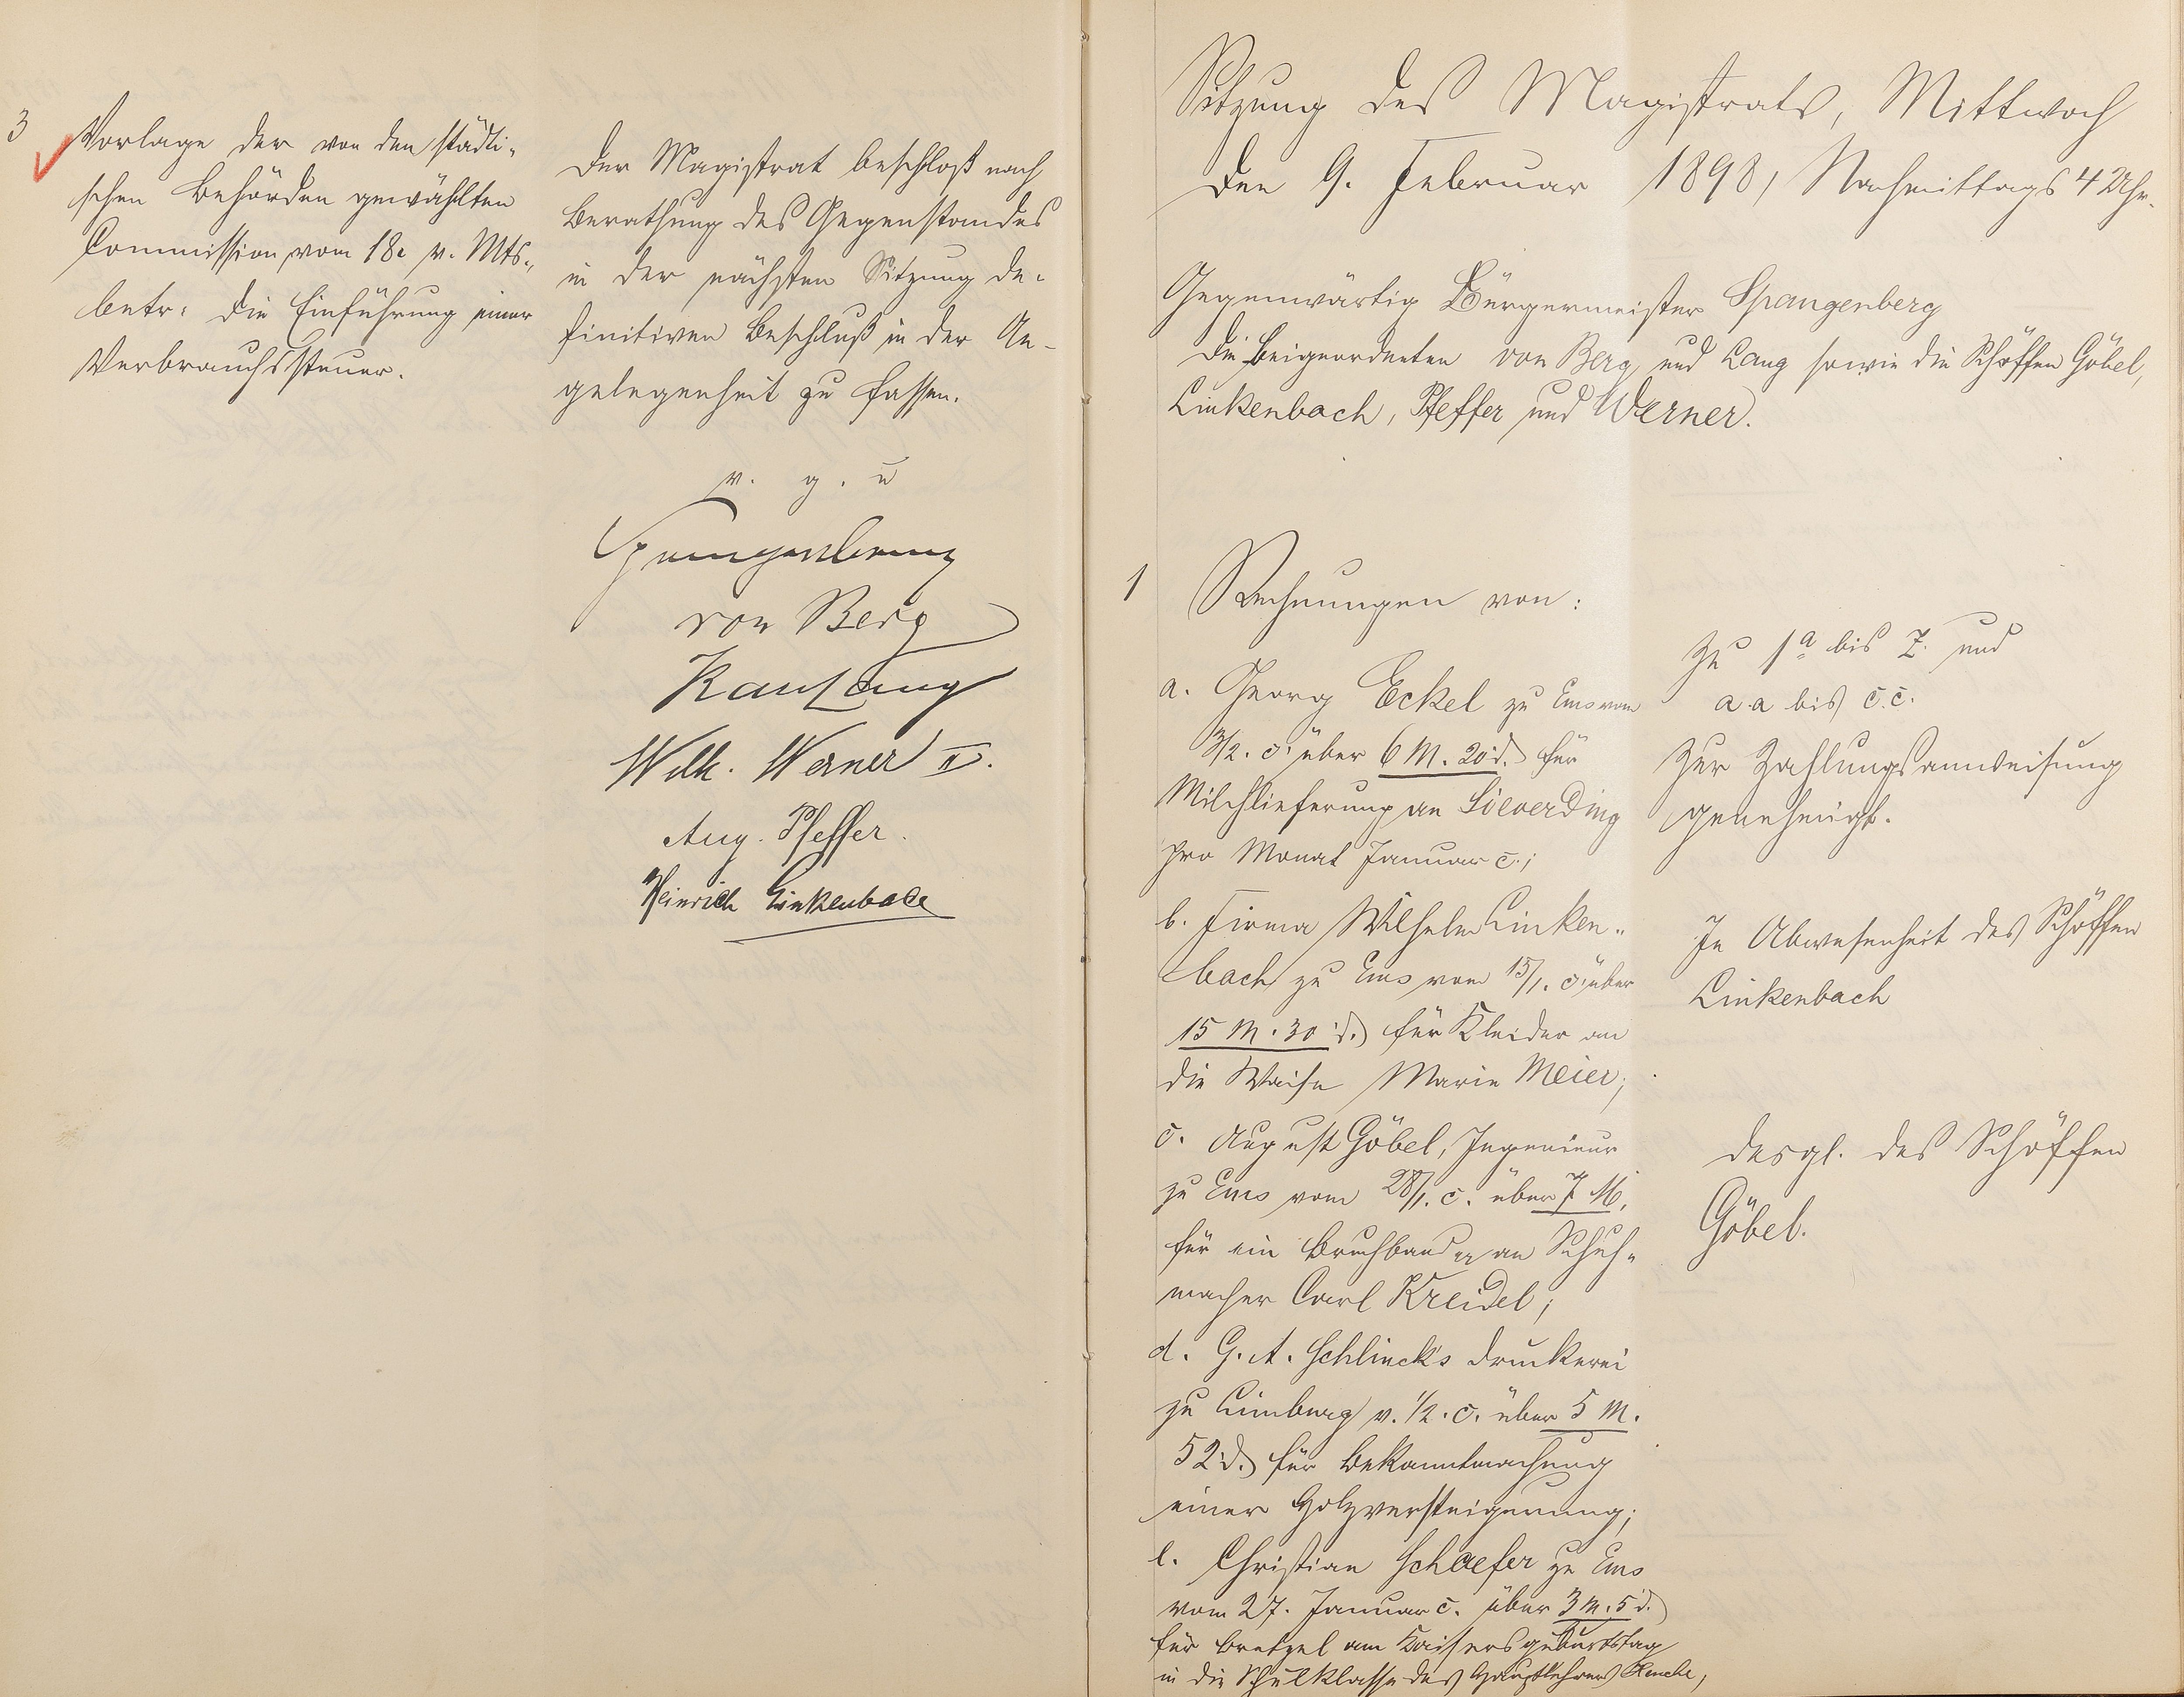 3
Vorlage der von den städti-
schen Behörden gewählten
Commission vom 18. v. Mts.,
betr. die Einführung einer
Verbrauchssteuer.
Der Magistrat beschloß nach
Berathung des Gegenstandes
in der nächsten Sitzung de-
finitiven Beschluß in der An-
gelegenheit zu fassen.
v. g. u
Spangenberg
von Berg
Karl Lang
Wilh. Werner II.
Aug. Pfeffer.
Heinrich Linkenbach
Sitzung des Magistrats, Mittwoch
den 9. Februar 1898, Nachmittags 4 Uhr.
Gegenwärtig Bürgermeister Spangenberg
die Beigeordneten von Berg und Lang sowie die Schöffen Göbel,
Linkenbach, Pfeffer und Werner.
1
Rechnungen von:
a. Georg Eckel zu Ems vom
3/2. c. über 6 M. 20 d. für
Milchlieferung an Sieverding
pro Monat Januar c.;
b. Firma Wilhelm Linken-
bach zu Ems vom 15/1. c. über
15 M. 30 d. für Kleider an
die Waise Marie Meier;
c. August Göbel, Ingenieur
zu Ems vom 28/1. c. über 7 M.
für ein Bruchband an Schuh-
macher Carl Kreidel;
d. G. A. Schlinck's Druckerei
zu Limburg v. 1/2. c. über 5 M.
52 d. für Bekanntmachung
einer Holzversteigerung;
e. Christian Schaefer zu Ems
vom 27. Januar c. über 3 M. 5 d.
für Bretzel am Kaisersgeburtstag
in die Schulklasse des Hauptlehrers
Zu 1 a bis Z. und
a.a bis c.c.
Zur Zahlungsanweisung
genehmigt.
In Abwesenheit des Schöffen
Linkenbach
desgl. des Schöffen
Göbel.